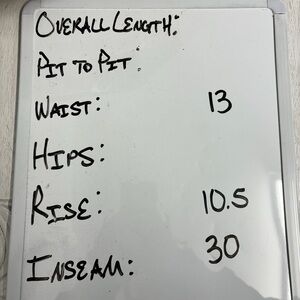 Overall Length:
Pit to Pit:
Waist: 13
Hips:
Rise: 10.5
Inseam: 30